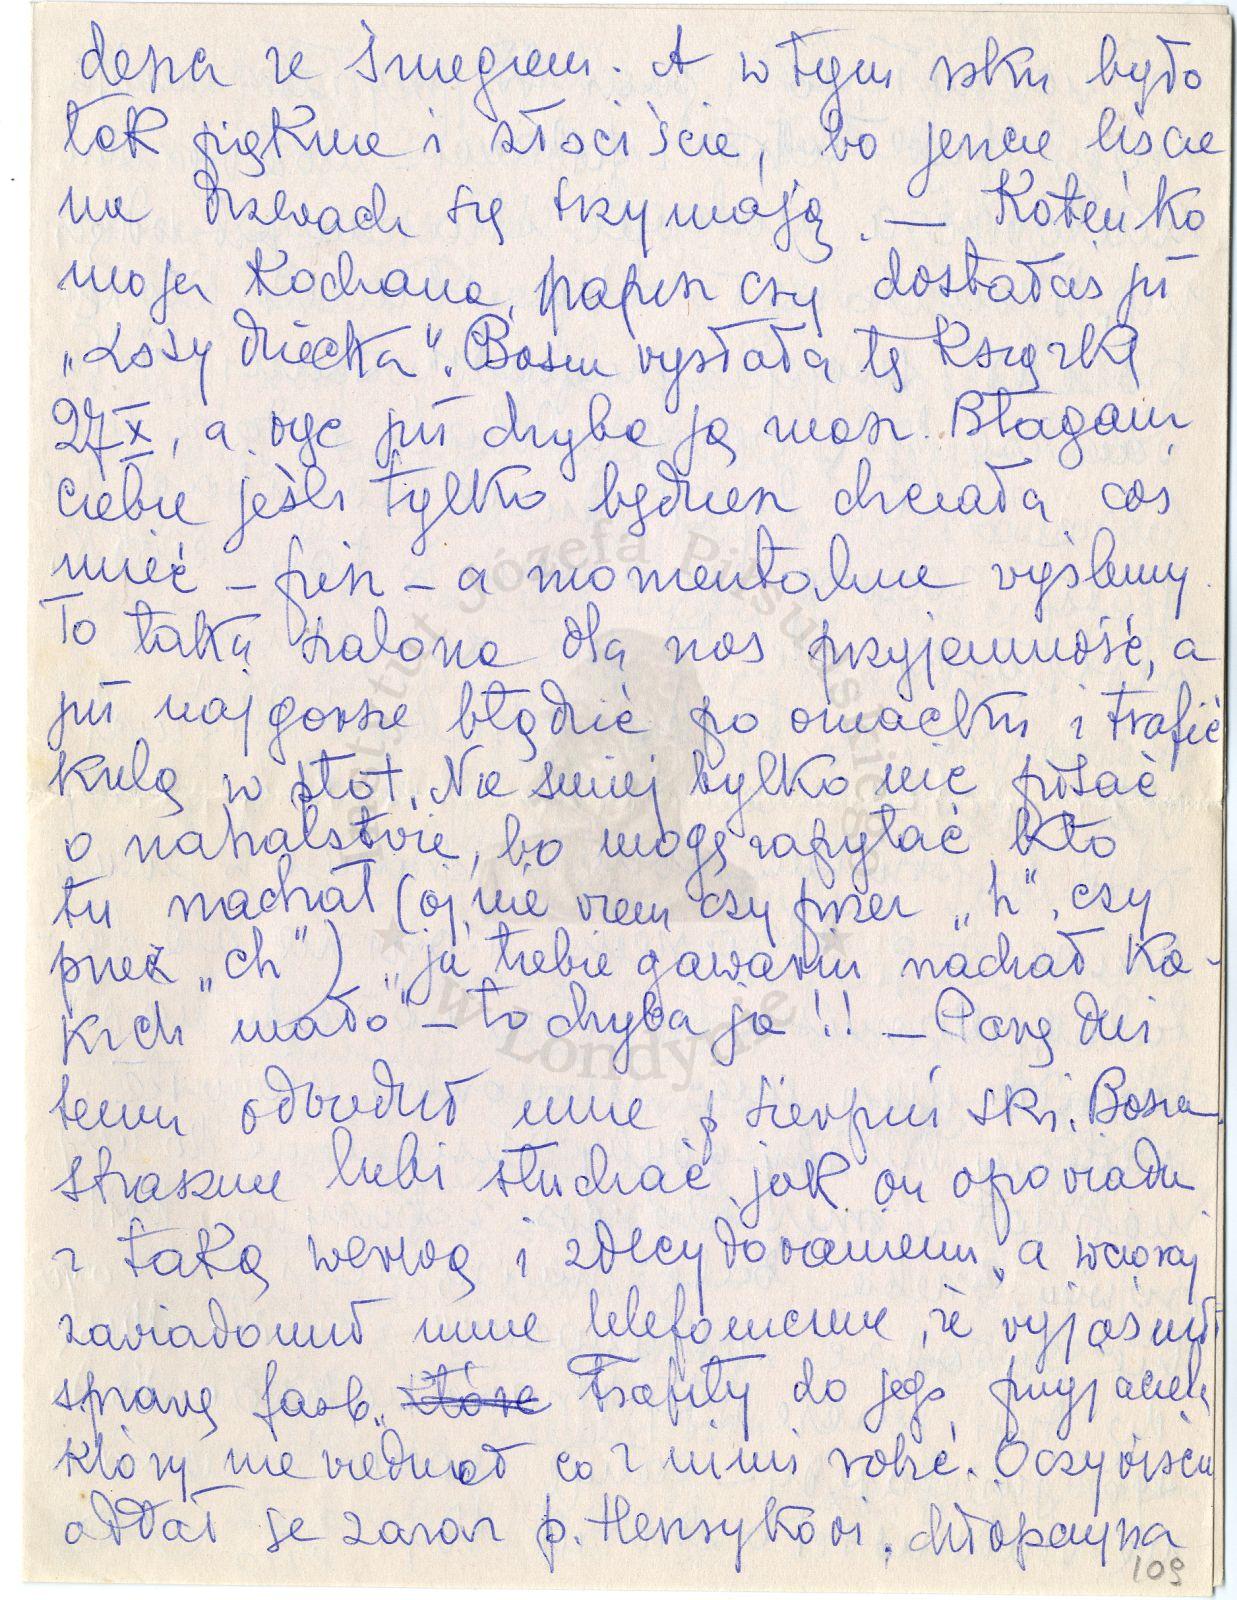 depa ze śniegiem. A w tym roku było
tak pięknie i złociście, bo jeszcze liście
na drzewach się trzymają. — Koteńko
moja Kochana, napisz czy dostałaś już
„Losy dziecka". Bosia wysłała tę książkę
27 X, a więc już chyba ją masz. Błagam
ciebie jeśli tylko będziesz chciała coś
mieć – pisz – a momentalnie wyślemy.
To taka szalona dla nas przyjemność, a
już najgorsze błądzić po omacku i trafić
kulą w płot. Nie śmiej tylko nic pisać
o nahalstwie, bo mogę zapytać kto
tu nachał (oj, nie wiem czy przez „h", czy
przez „ch") „ja tiebie gawariu nachał ka-
kich mało" – to chyba ja!! — Parę dni
temu odwiedził mnie p. Sierpiński. Bosia
strasznie lubi słuchać jak on opowiada
z taką werwą i zdecydowaniem, a wczoraj
zawiadomił mnie telefonicznie, że wyjaśnił
sprawę farb. Trafiły do jego przyjaciela
który nie wiedział co z nimi robić. Oczywiście
oddał je zaraz p. Henrykowi, chłopczyna
109
Instytut Józefa Piłsudskiego
w Londynie